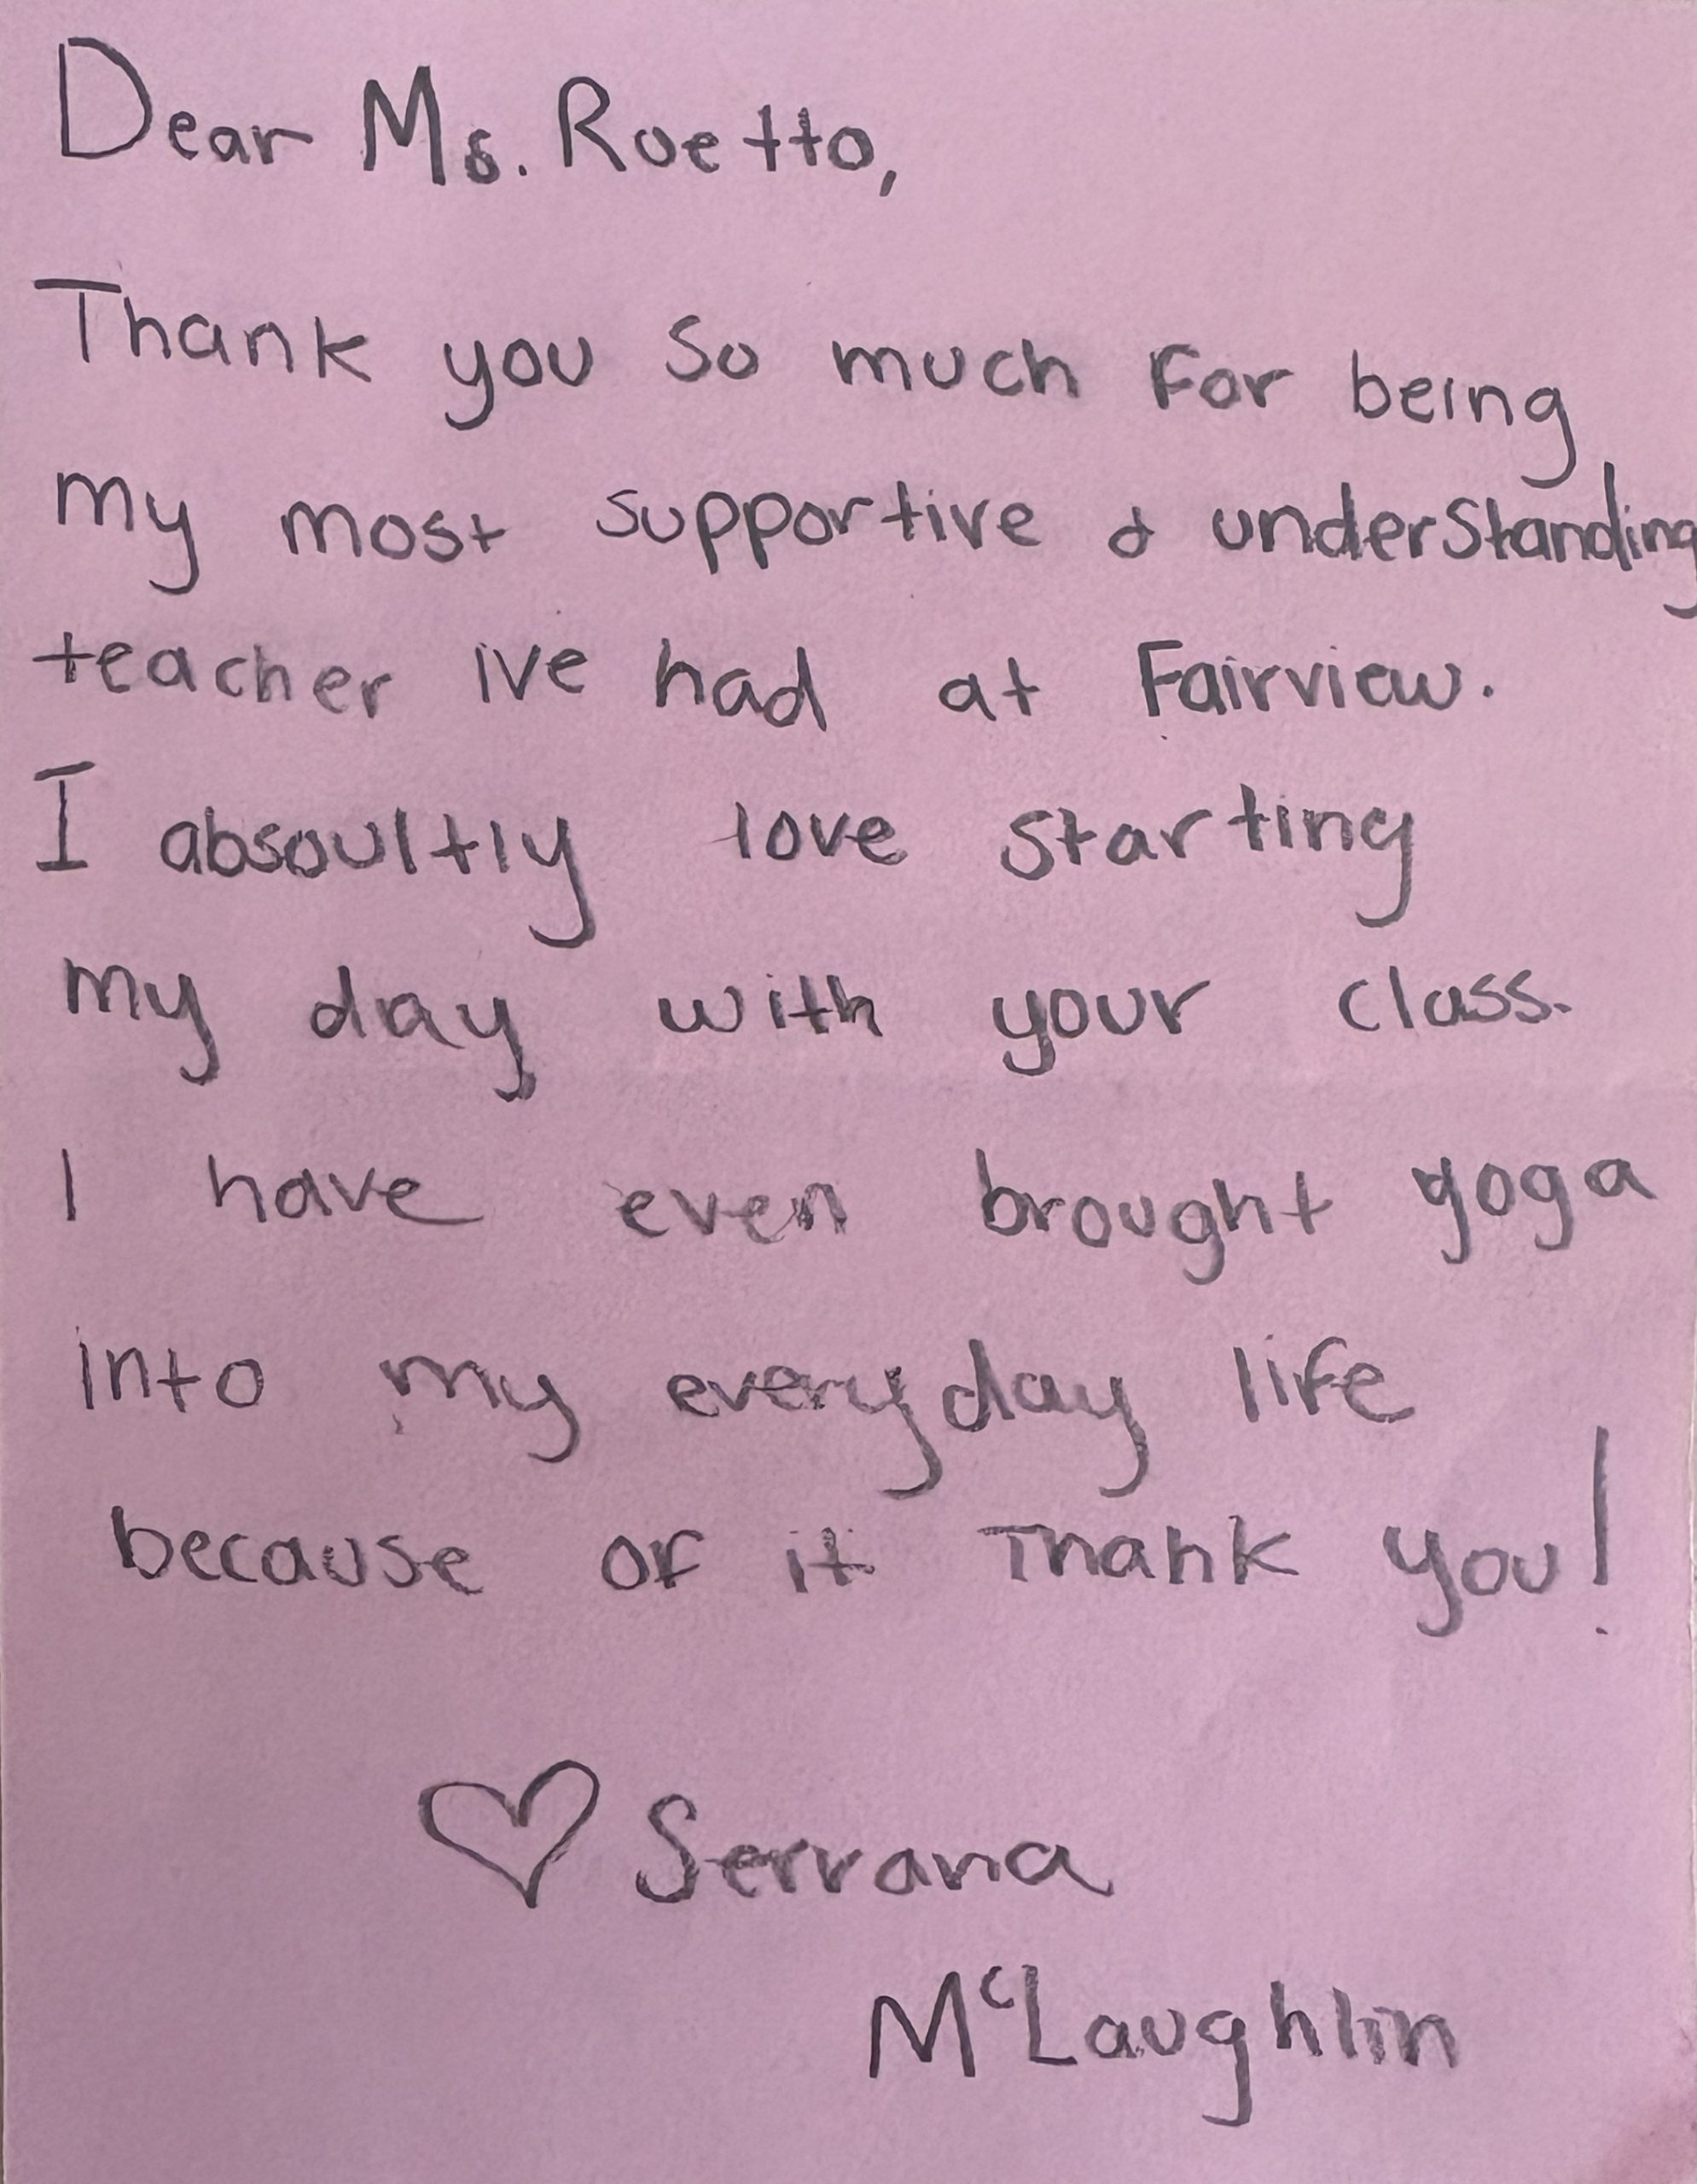 Dear Ms. Ruetto,
Thank you so much for being
my most supportive & understanding
teacher ive had at Fairview.
I absoultly love starting
my day with your class.
I have even brought yoga
into my everyday life
because of it Thank you!
♡ Servana
McLaughlin